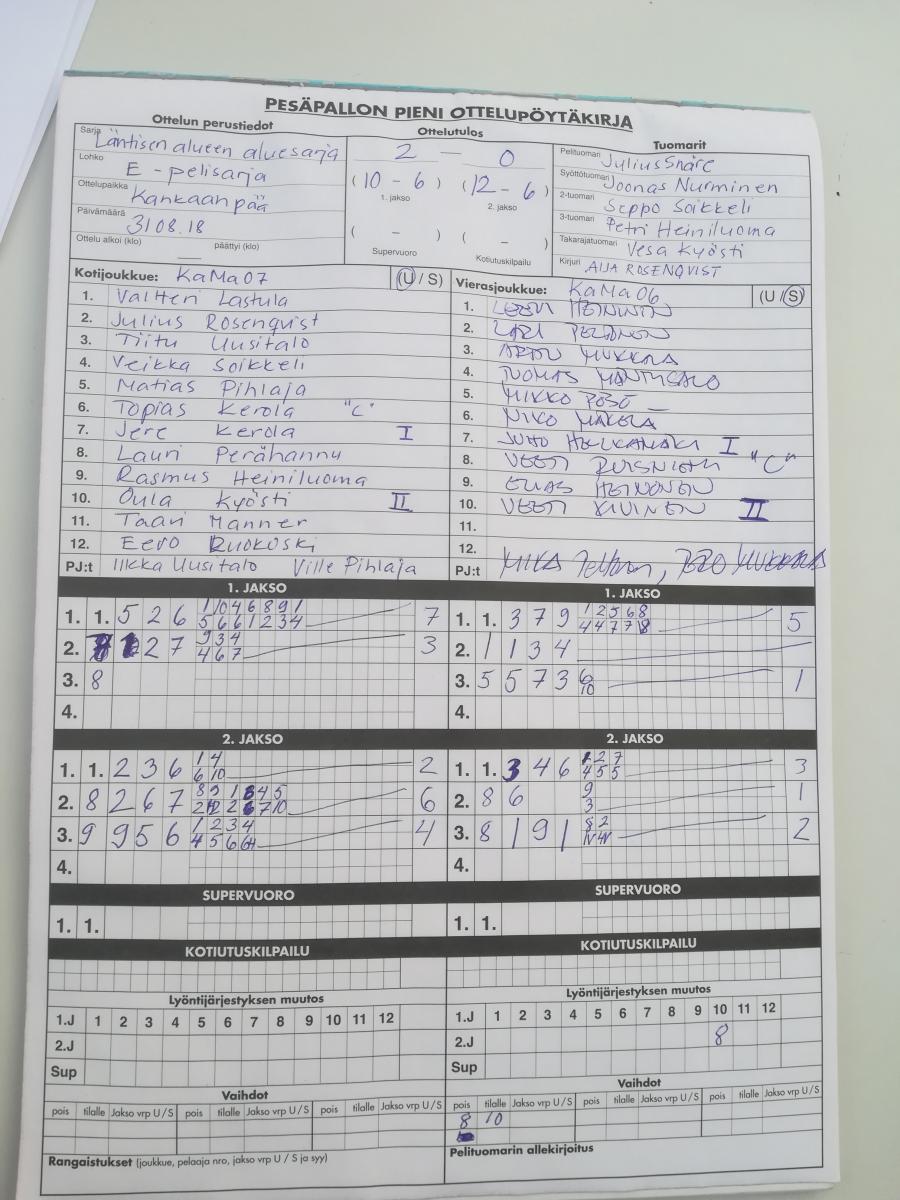 PESÄPALLON PIENI OTTELUPÖYTÄKIRJA
Ottelun perustiedot
Sarja Läntisen alueen aluesarja
Lohko E - pelisarja
Ottelupaikka Kankaanpää
Päivämäärä 31 08. 18
Ottelu alkoi (klo) päättyi (klo)
Ottelutulos
2 — 0
(10 - 6) (12 - 6)
1. jakso 2. jakso
( - ) ( - )
Supervuoro Kotiutuskilpailu
Tuomarit
Pelituomari Julius Snäre
Syöttötuomari Joonas Nurminen
2-tuomari Seppo Soikkeli
3-tuomari Petri Heiniluoma
Takarajatuomari Vesa Kyösti
Kirjuri AIJA ROSENQVIST
Kotijoukkue: KaMa07 (U / S)
1. Valtteri Lastula
2. Julius Rosenqvist
3. Tiitu Uusitalo
4. Veikka Soikkeli
5. Matias Pihlaja
6. Topias Kerola "C"
7. Jere Kerola I
8. Lauri Perähannu
9. Rasmus Heiniluoma
10. Oula Kyösti II
11. Taavi Manner
12. Eero Ruokoski
PJ:t Ilkka Uusitalo Ville Pihlaja
Vierasjoukkue: KaMa06 (U / S)
1. LEEVI HEININEN
2. LARI
3.
4. TUOMAS
5. MIKKO
6. NIKO MÄKELÄ
7. JUHO I
8. VEETI "C"
9. ELIAS HEINONEN
10. VEETI KIVINEN II
11.
12.
PJ:t MIKA
1. JAKSO
1. 1. 5 2 6 7
2. 2 7 9 3 4 3
4 6 7
3. 8
4.
1. JAKSO
1. 1. 3 7 9 1 2 5 6 8 5
4 4 7 7 8
2. 1 1 3 4
3. 5 5 7 3 6 1
10
4.
2. JAKSO
1. 1. 2 3 6 1 4 2
6 10
2. 8 2 6 7 6
3. 9 9 5 6 1 2 3 4 4
4.
2. JAKSO
1. 1. 3 4 6 1 2 7 3
4 5 5
2. 8 6 9 1
3
3. 8 1 9 1 8 2 2
4.
SUPERVUORO
1. 1.
SUPERVUORO
1. 1.
KOTIUTUSKILPAILU
KOTIUTUSKILPAILU
Lyöntijärjestyksen muutos
1.J 1 2 3 4 5 6 7 8 9 10 11 12
2.J
Sup
Lyöntijärjestyksen muutos
1.J 1 2 3 4 5 6 7 8 9 10 11 12
2.J 8
Sup
Vaihdot
pois tilalle Jakso vrp U / S pois tilalle Jakso vrp U / S pois tilalle Jakso vrp U / S
Vaihdot
pois tilalle Jakso vrp U / S pois tilalle Jakso vrp U / S pois tilalle Jakso vrp U / S
8 10
Rangaistukset (joukkue, pelaaja nro, jakso vrp U / S ja syy)
Pelituomarin allekirjoitus